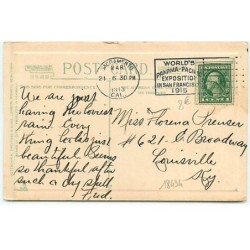 POST CARD
SACRAMENTO
MAR
21
6.30 PM
1913
CAL.
WORLD'S
PANAMA-PACIFIC
EXPOSITION
IN SAN FRANCISCO
1915
We are just
having the loveliest
rain. Every
thing looks just
beautiful. Seems
so thankful after
such a dry spell.
Fred.
Miss Florena
#621 - S. Broadway
Louisville
Ky.